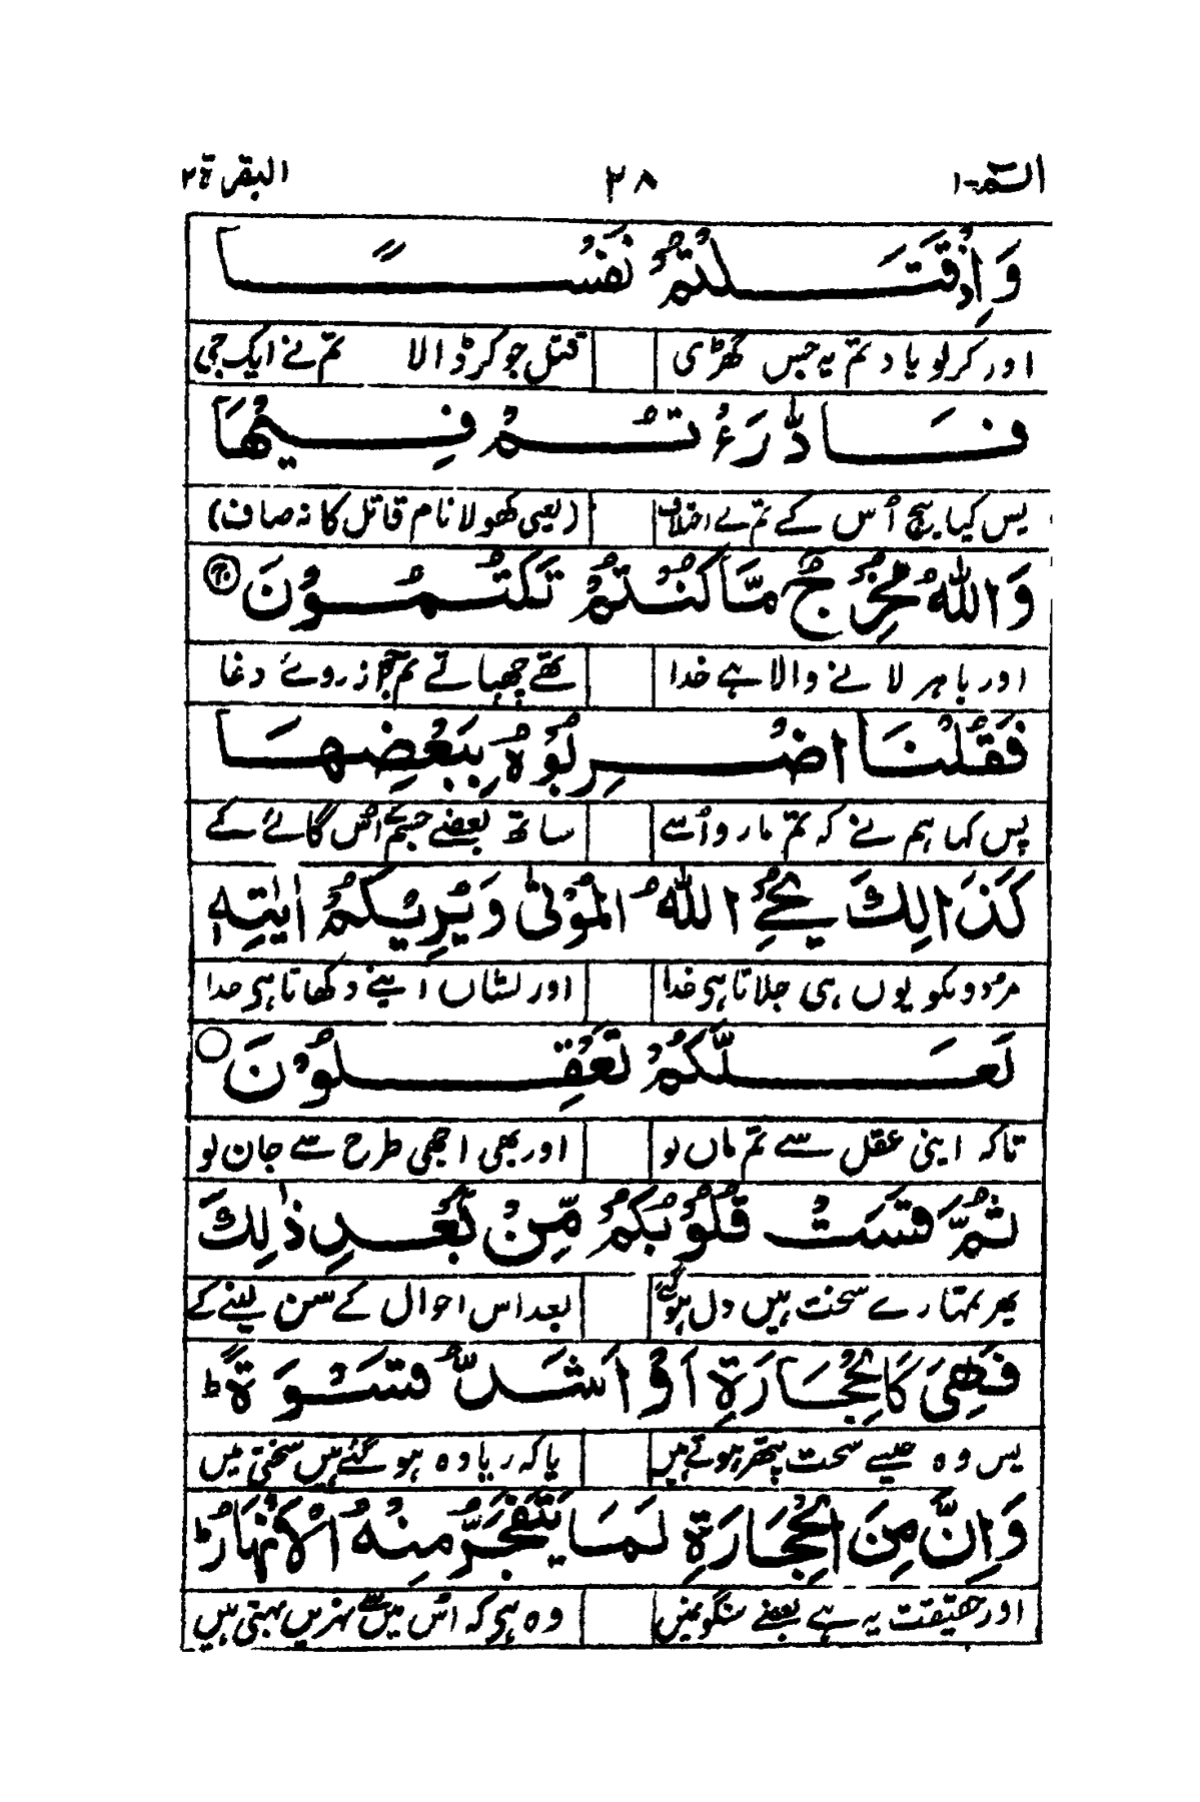 الٓمّٓ-۱ ۲۸ البقرة ۲
وَاِذْ قَتَلْتُمْ نَفْسًا
اور کرلو یاد تم یہ جس گھڑی قتل جو کر ڈالا تم نے ایک جی
فَادّٰرَءْتُمْ فِيْهَا
پس کیا بیچ اُس کے تم نے اختلاف (یعنی کھولا نام قاتل کا نہ صاف)
وَاللّٰهُ مُخْرِجٌ مَّا كُنْتُمْ تَكْتُمُوْنَ
اور باہر لانے والا ہے خدا تھے چھپاتے تم جو از روئے دغا
فَقُلْنَا اضْرِبُوْهُ بِبَعْضِهَا
پس کہا ہم نے کہ تم مارو اُسے ساتھ بعضے جسم اُس گائے کے
كَذَالِكَ يُحْيِ اللّٰهُ الْمَوْتٰى وَيُرِيْكُمْ اٰيٰتِهٖ
مردوں کو یوں ہی جلاتا ہی خدا اور نشاں اپنے دکھاتا ہی خدا
لَعَلَّكُمْ تَعْقِلُوْنَ
تاکہ اپنی عقل سے تم ماں لو اور بھی اچھی طرح سے جان لو
ثُمَّ قَسَتْ قُلُوْبُكُمْ مِّنْ بَعْدِ ذٰلِكَ
پھر تمہارے سخت ہیں دل ہو گئے بعد اس احوال کے سن لینے کے
فَهِيَ كَالْحِجَارَةِ اَوْ اَشَدُّ قَسْوَةً ؕ
پس وہ جیسے سخت پتھر ہوتے ہیں یا کہ زیادہ ہو گئے ہیں سختی میں
وَاِنَّ مِنَ الْحِجَارَةِ لَمَا يَتَفَجَّرُ مِنْهُ الْاَنْهَارُ ؕ
اور حقیقت یہ ہے بعضے سنگوں میں وہ ہی کہ اُس میں سے نہریں بہتی ہیں